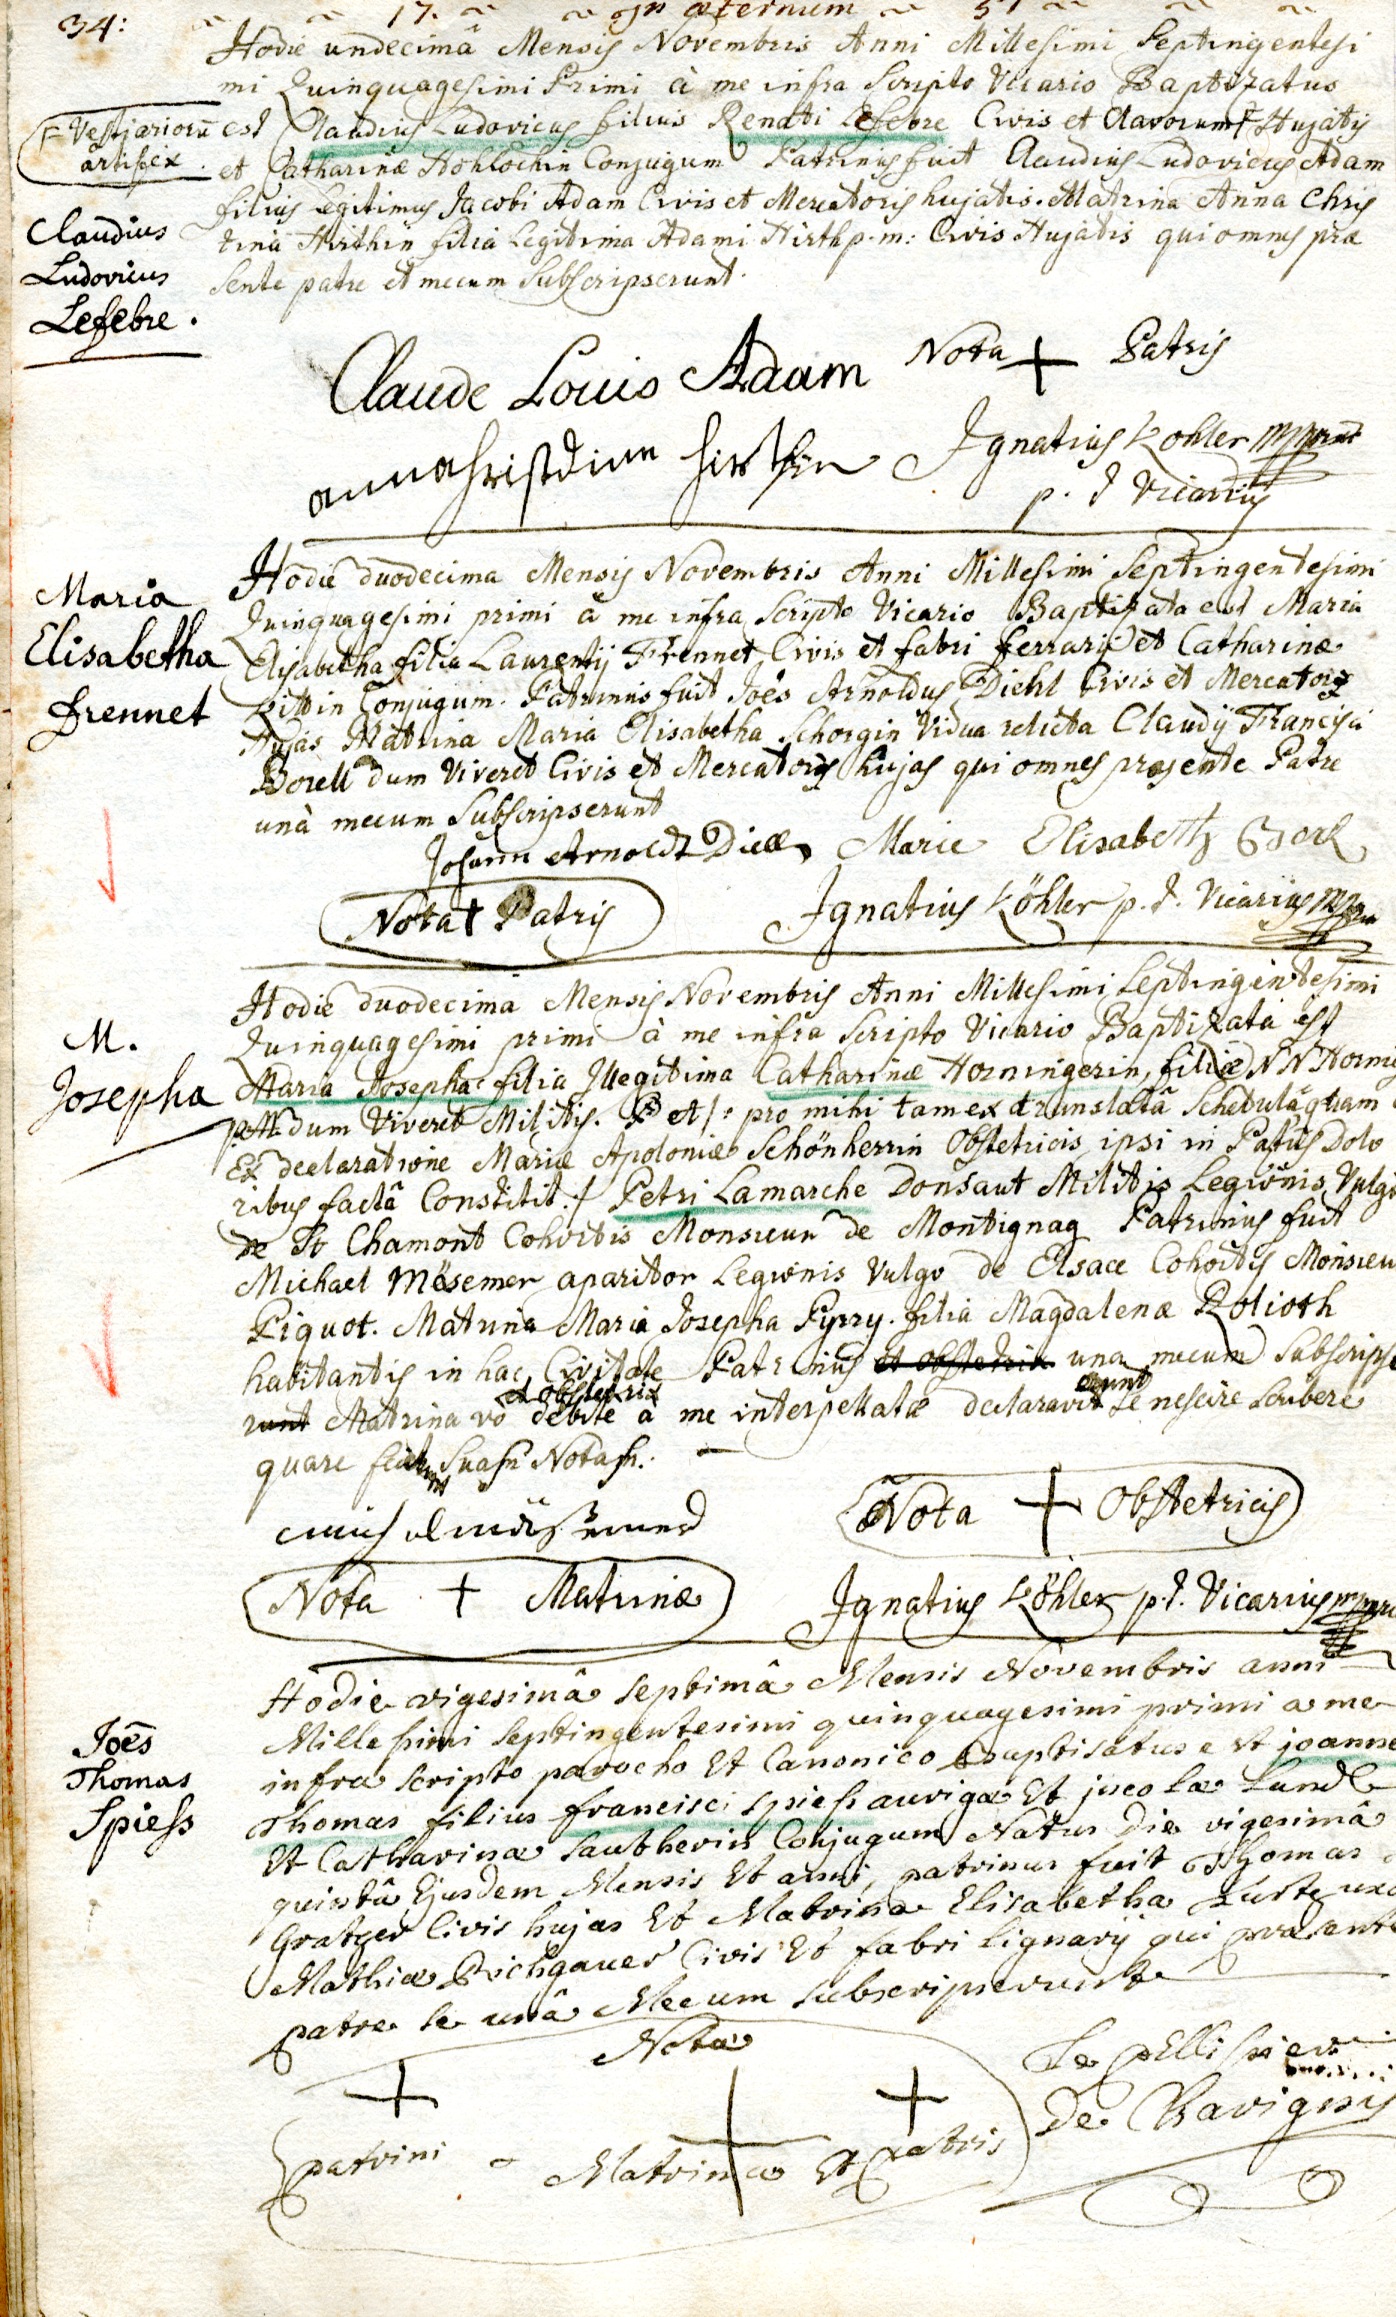 34:
17. In æternum 51
Hodie undecimâ Mensis Novembris Anni Millesimi Septingentesi
mi Quinquagesimi Primi à me infra Scripto Vicario Baptizatus
est Claudius Ludovicus filius Renati Lefebre Civis et Clavorum F Hujatis
F Vestiariorū
artifex.
et Catharinæ Hohlochin Conjugum Patrinus fuit Claudius Ludovicus Adam
filius Legitimus Jacobi Adam Civis et Mercatoris hujatis. Matrina Anna Chris
tina Hirthin filia Legitima Adami Hirth p.m: Civis Hujatis qui omnes præ
sente patre et mecum Subscripserunt.
Claudius
Ludovicus
Lefebre.
Claude Louis Adam Nota + Patris
anna christina hirthin Ignatius Kohler
p. t Vicarius
Maria
Elisabetha
frennet
Hodie duodecima Mensis Novembris Anni Millesimi Septingentesimi
Quinquagesimi primi à me infra Scripto Vicario Baptizata est Maria
Elisabetha filia Laurentij Frennet Civis et fabri ferrarij et Catharinæ
Littin Conjugum. Patrinus fuit Joes Arnoldus Diehl Civis et Mercatoris
Hujas Matrina Maria Elisabetha Schorgin Vidua relicta Claudij Francisci
Borell dum Viveret Civis et Mercatoris hujas qui omnes præsente Patre
unà mecum Subscripserunt
Johann Arnoldt Marie Elisabeth
Nota + Patris Ignatius Köhler p. t. Vicarius
M.
Josepha
Hodie duodecima Mensis Novembris Anni Millesimi Septingentesimi
Quinquagesimi primi à me infra Scripto Vicario Baptizata est
Maria Josepha filia Illegitima Catharinæ Horningerin, filiæ N N
p.m. dum Viveret Militis. P et /: pro mihi tam ex translatâ Schedulâ quam
Ex declaratione Mariæ Apoloniæ Schönherrin Obstetricis ipsi in Partûs Dolo
ribus factâ Constitit :/ Petri Lamarche Donsaut Militis Legionis Vulgo
de St Chamont Cohortis Monsieur de Montignag Patrinus fuit
Michael Mösemer aparitor Legionis Vulgo de Elsace Cohortis Monsieu
Piquot. Matrina Maria Josepha Pyrry. filia Magdalenæ Rolioth
habitantis in hac Civitate Patrinus et Obstetrix una mecum Subscripse
et obstetrix erunt
runt Matrina vō debite à me interpellatæ declaravit se nescire scribere
quare fecerunt Suas Notas.
Nota + Obstetricis
Nota + Matrinæ Ignatius Köhler p. t. Vicarius
Joēs
Thomas
Spiess
Hodie vigesimâ septimâ Mensis Novembris anni
Millesimi septingentesimi quinquagesimi primi a me
infra scripto parocho Et Canonico baptisatus est joanne
Thomas filius francisci spiess aurigæ Et jncolæ
Et Catharinæ Sautherin Conjugum Natus Die vigesimâ
quintâ Ejusdem Mensis Et anni, patrinus fuit Thomas
Gratzer Civis hujas Et Matrina Elisabetha
Mathiæ Richgauer Civis Et fabri lignarij qui præsente
patre se unâ Mecum subscripserunt
Nota
+ + +
patrini - Matrinæ Et patris
Le pellissier
De Ravignij